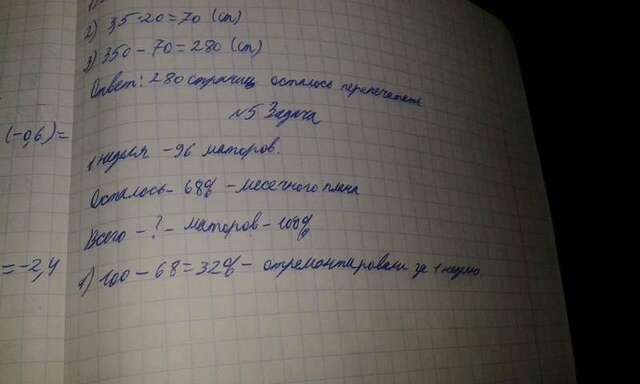 2) 3,5·20=70 (ст)
3) 350-70=280 (ст)
Ответ: 280 страниц осталось перепечатать
№5 Задача
(-0,6)=
1 неделя - 96 маторов.
Осталось - 68% - месечного плана
Всего - ? - маторов - 100%
=-2,4
1) 100-68=32% - отремонтировали за 1 неделю